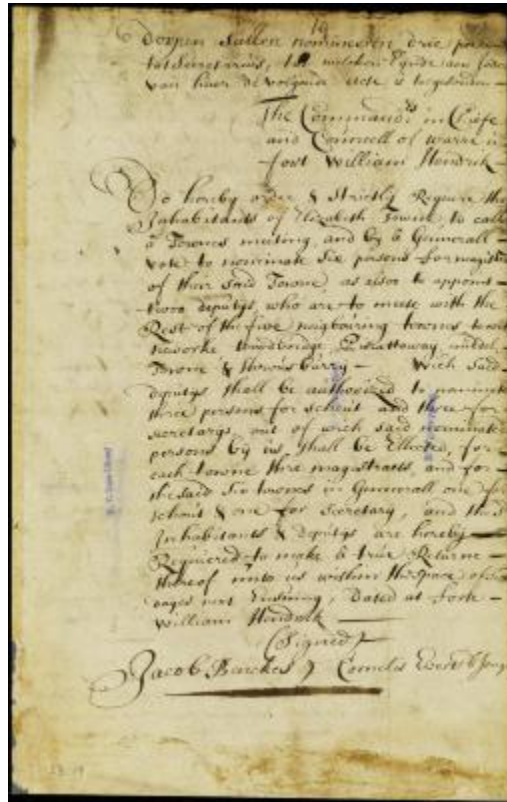 19
dorpen sullen nomineren drie
tot Secretarius, tot welcken Eynde aen
van haer de volgende acte is toegesonden —
The Commandrs in Chiefe
and Councell of warre in
fort William Hendrik —
Do hereby order & Strictly Require the
Inhabitants of Elizabeth Towne, to call
a Townes meeting, and by a Generall —
vote to nominate Six persons for magistra
of their said Towne, as also to appoint —
twoo deputys, who are to meete with the
Rest of the five neigbouring townes to wit
neworke woodbridge Piscattaway, middel
Towne & Shrousburry — Wich said
deputys shall be authorized to nominate
three persons for schout and three for
secretarys, out of wich said nominated
persons by us shall be Ellected, for
each towne thre magistrates, and for
the said Six townes in Generall one for
schout & one for Secretary, and the
Inhabitants & deputys are hereby
Required to make a true Returne —
thereof unto us within the space of
dayes next Ensuing, Dated at forte —
William Hendrik —
(Signed)
Jacob Benckes / Cornelis Everts de Jonge